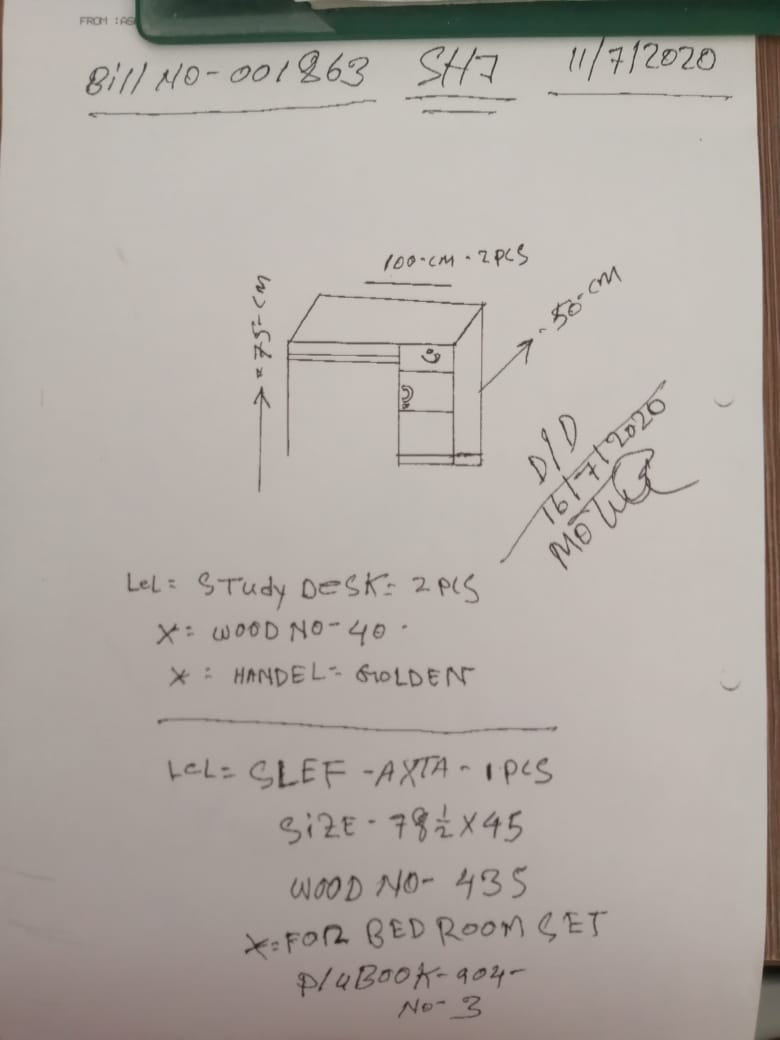 FROM :AS
Bill NO-001863 SH7 11/7/2020
100-CM-2PCS
=75-CM
-50-CM
D/D
16/7/2020
LCL= STudy DESK= 2PCS
X= WOOD NO-40
X= HANDEL= GOLDEN
LCL= SLEF-AXTA-1PCS
SIZE-78½X45
WOOD NO-435
X=FOR BED ROOM SET
BOOK-904-
NO-3